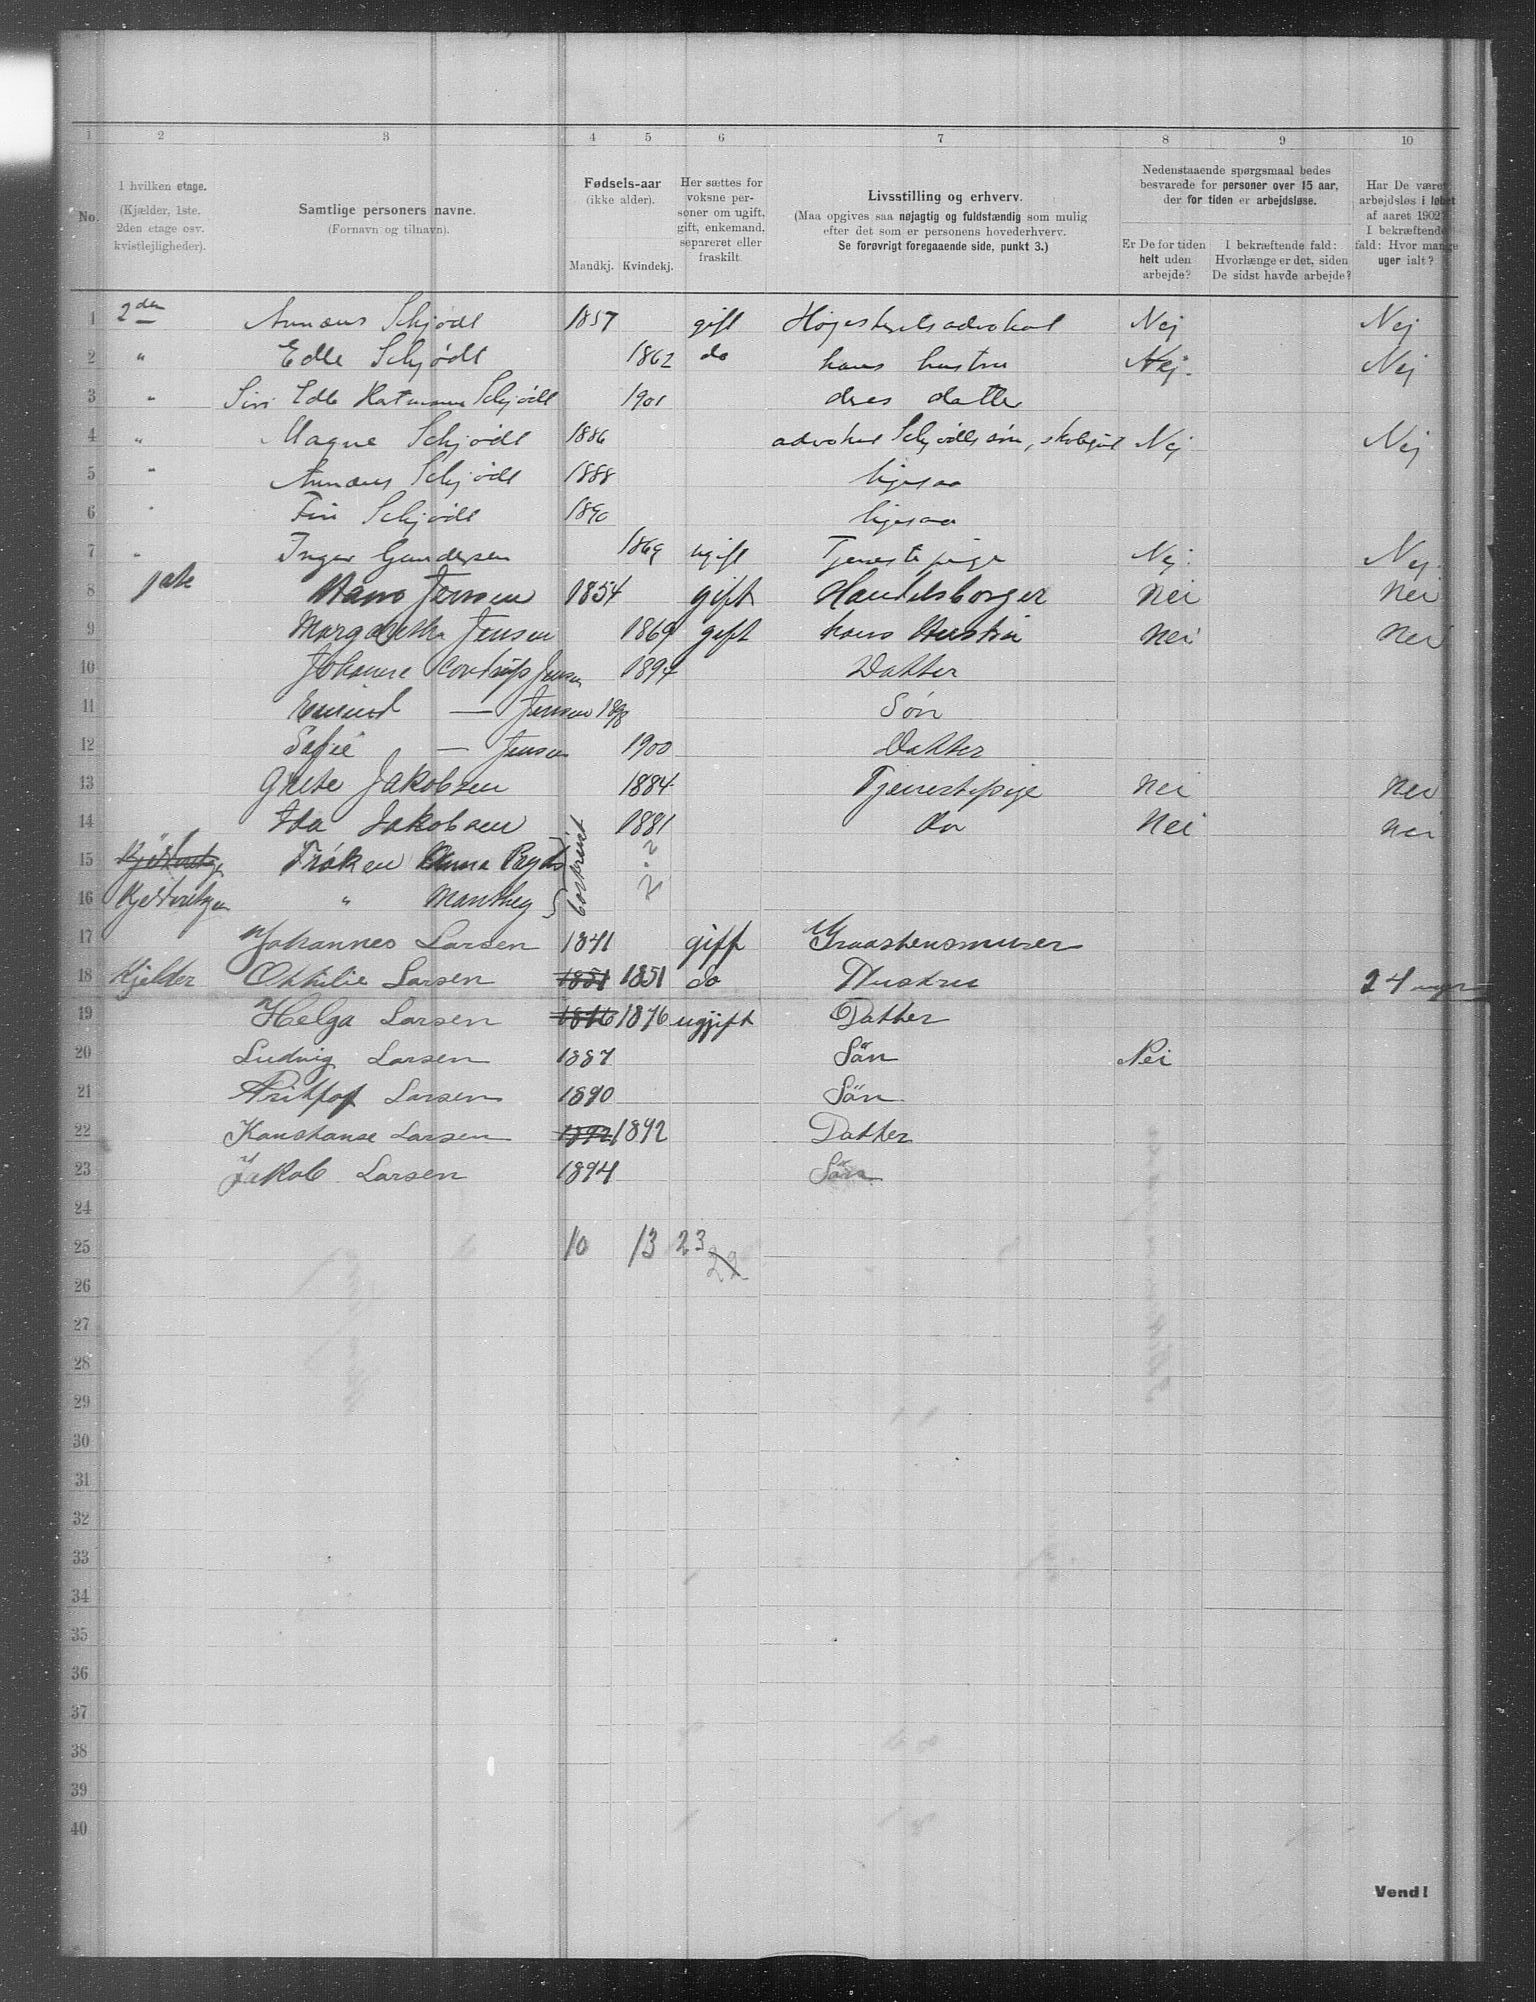 1 2 3 4 5 6 7 8 9 10
No.
I hvilken etage.
(Kjælder, 1ste.
2den etage osv.
kvistlejligheder).
Samtlige personers navne.
(Fornavn og tilnavn).
Fødsels-aar
(ikke alder).
Mandkj. Kvindekj.
Her sættes for
voksne per-
soner om ugift,
gift, enkemand,
separeret eller
fraskilt.
Livsstilling og erhverv.
(Maa opgives saa nøjagtig og fuldstændig som mulig
efter det som er personens hovederhverv.
Se forøvrigt foregaaende side, punkt 3.)
Nedenstaaende spørgsmaal bedes
besvarede for personer over 15 aar,
der for tiden er arbejdsløse.
Er De for tiden
helt uden
arbejde?
I bekræftende fald:
Hvorlænge er det, siden
De sidst havde arbejde?
Har De været
arbejdsløs i løbet
af aaret 1902?
I bekræftende
fald: Hvor mange
uger ialt?
1 2den Annæus Schjødt 1857 gift Højesteretsadvokat Nej Nej
2 " Edle Schjødt 1862 do hans hustru Nej. Nej
3 " Siri Edle Hartmann Schjødt 1901 deres datter
4 " Magne Schjødt 1886 advokat Schjødts søn, skolegut Nej Nej
5 " Annæus Schjødt 1888 ligesaa
6 " Fin Schjødt 1890 ligesaa
7 " Inger Gundersen 1869 ugift Tjenestepige Nej. Nej.
8 1ste Hans Jensen 1854 gift Handelsborger Nei Nei
9 Margarethe Jensen 1869 gift hans Hustru Nei Nei
10 Johanne Jensen 1894 Datter
11 — Jensen 1898 Søn
12 Sofie — Jensen 1900 Datter
13 Grete Jakobsen 1884 Tjenestepige Nei Nei
14 Ida Jakobsen 1881 do Nei Nei
15 Frøken Anna ?
16 " Manthey bortreist ?
17 Johannes Larsen 1841 gift Graastensmurer
18 Kjelder Othilie Larsen 1851 1851 do Hustru 24 uger
19 Helga Larsen 1876 1876 ugjift Datter
20 Ludvig Larsen 1887 Sön Nei
21 Fritjof Larsen 1890 Sön
22 Konstanse Larsen 1892 1892 Datter
23 Jakob Larsen 1894 Sön
24
25 10 13 23
22
26
27
28
29
30
31
32
33
34
35
36
37
38
39
40
Vend!